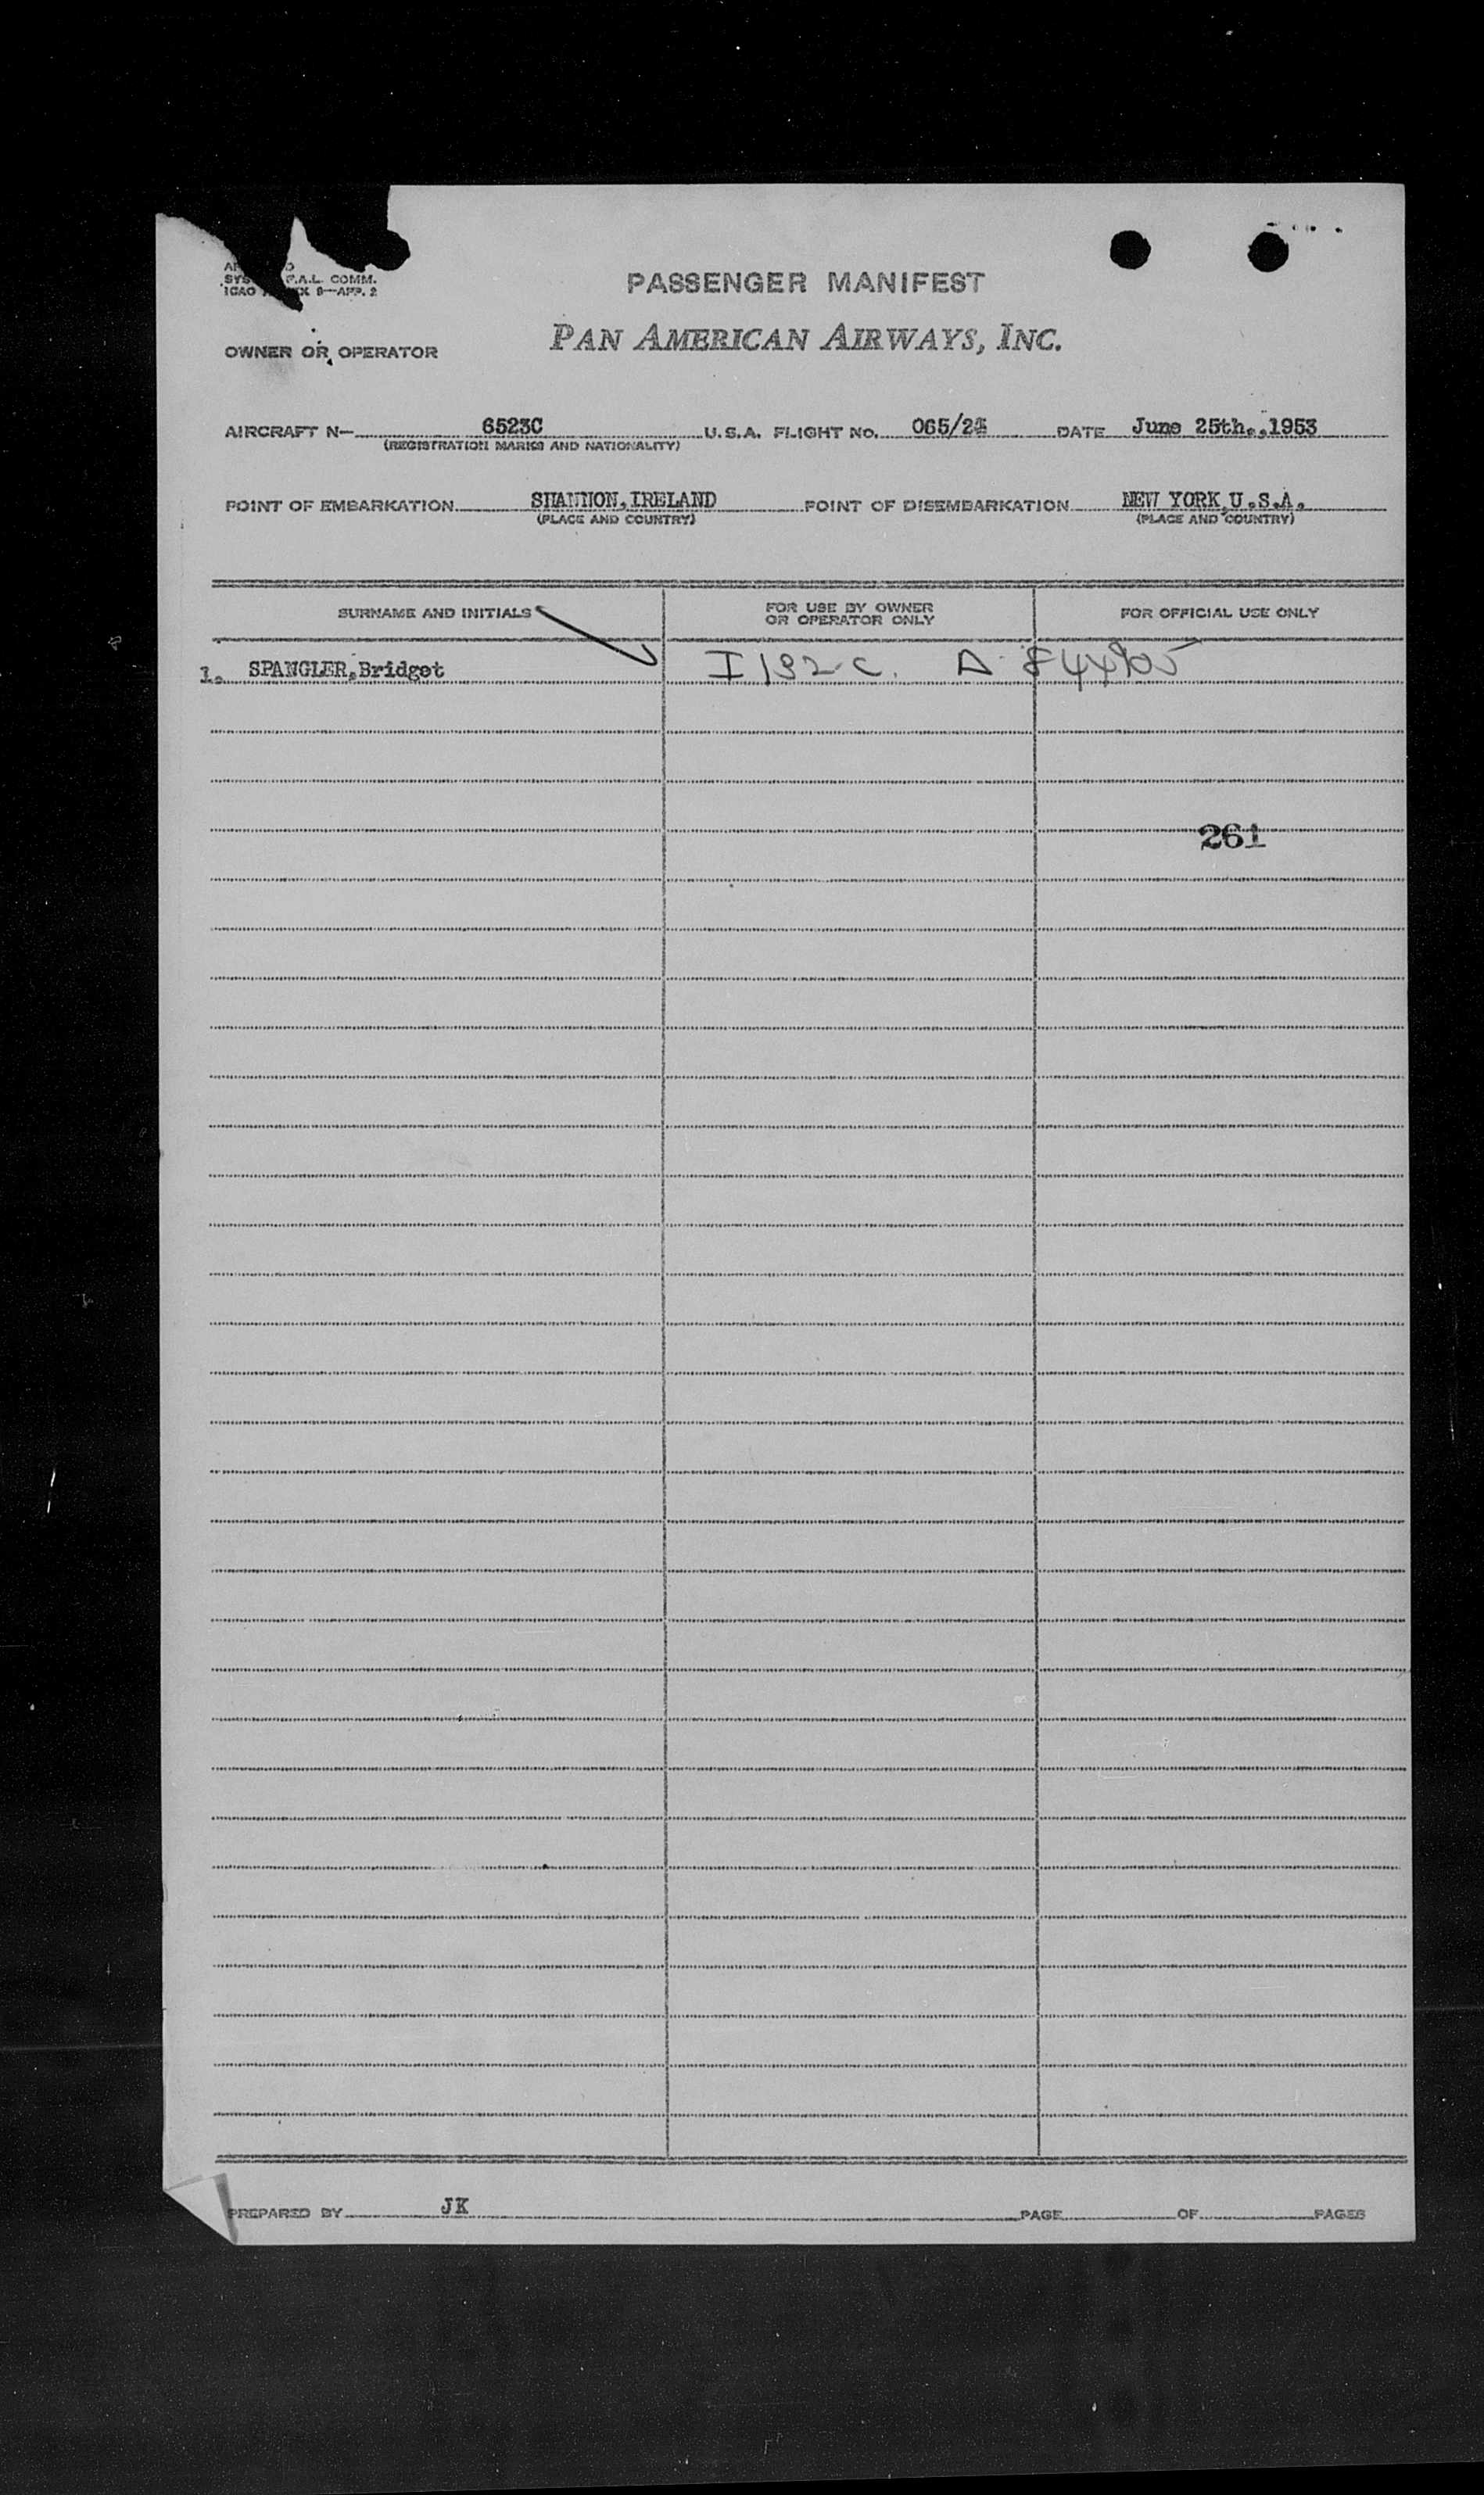 F.A.L. COMM.
ICAO 9—APP. 2
PASSENGER MANIFEST
OWNER OR OPERATOR PAN AMERICAN AIRWAYS, INC.
AIRCRAFT N— 6523C U.S.A. FLIGHT No. 065/24 DATE June 25th.,1953
(REGISTRATION MARKS AND NATIONALITY)
POINT OF EMBARKATION SHANNON,IRELAND POINT OF DISEMBARKATION NEW YORK,U.S.A.
(PLACE AND COUNTRY) (PLACE AND COUNTRY)
SURNAME AND INITIALS FOR USE BY OWNER OR OPERATOR ONLY FOR OFFICIAL USE ONLY
1. SPANGLER,Bridget I 132-C. A
261
PREPARED BY JK PAGE OF PAGES